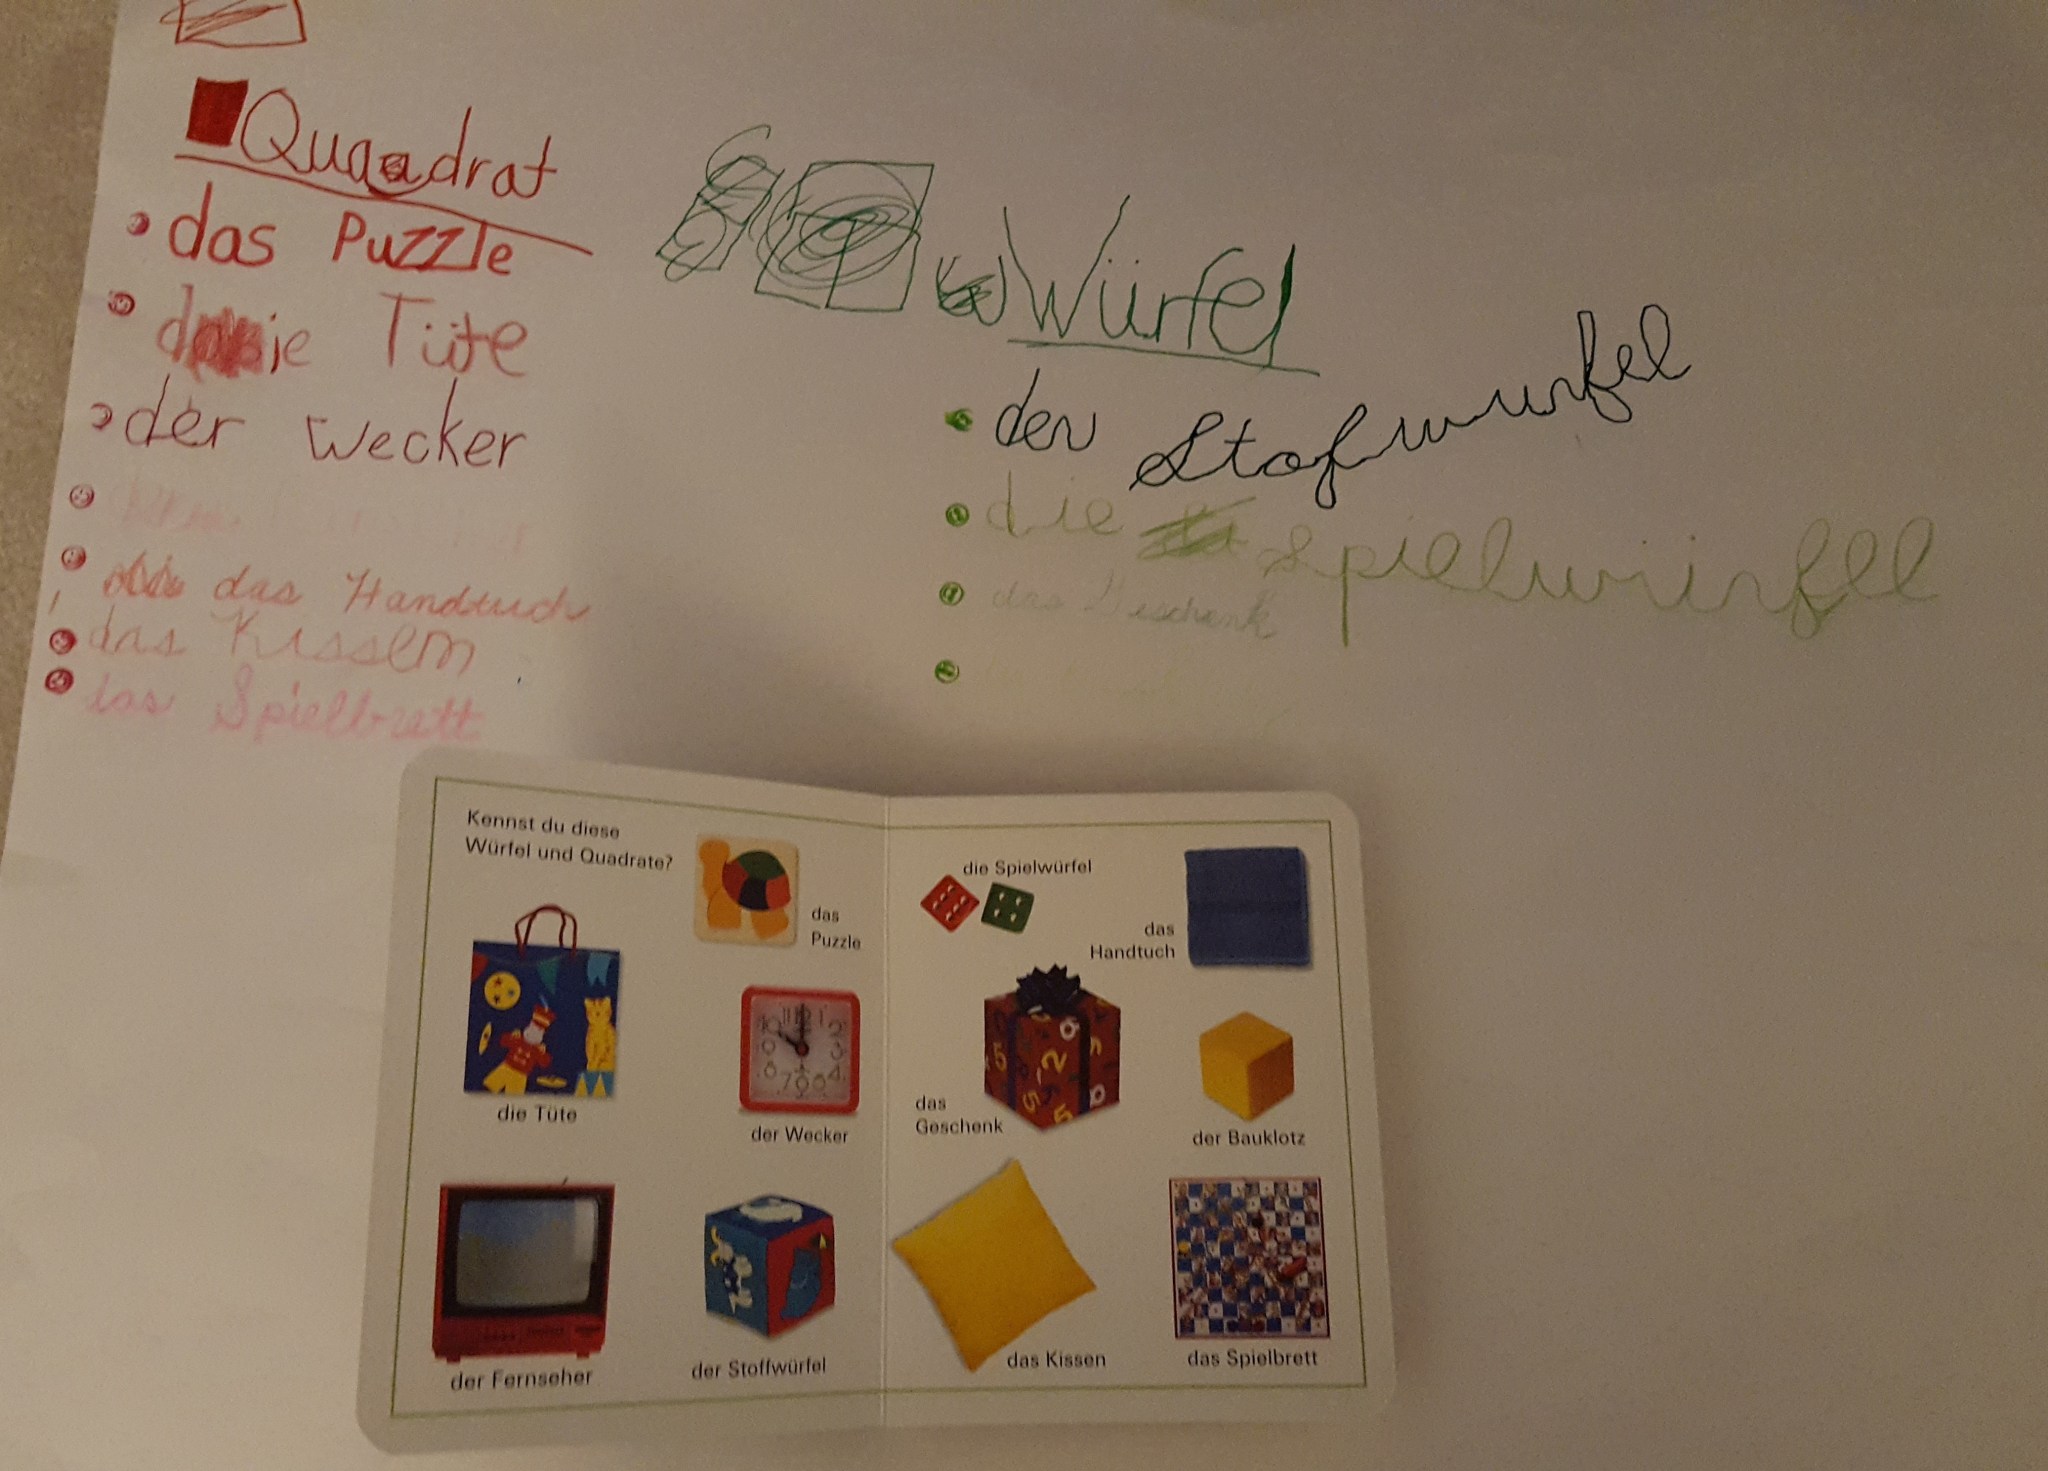 Quadrat
das Puzzle
die Tüte
der Wecker
das Handtuch
das Kissem
das Spielbrett
Würfel
der Stofwurfel
die Spielwürfel
das Geschenk
Kennst du diese
Würfel und Quadrate?
das
Puzzle
die Tüte
der Wecker
der Fernseher
der Stoffwürfel
die Spielwürfel
das
Handtuch
das
Geschenk
der Bauklotz
das Kissen
das Spielbrett